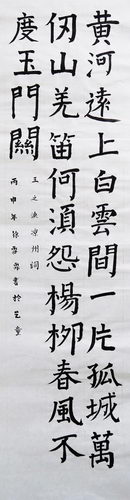 黄河遠上白雲間一片孤城萬
仞山羌笛何須怨楊柳春風不
度玉門關
王之渙凉州詞
丙申年徐
書於